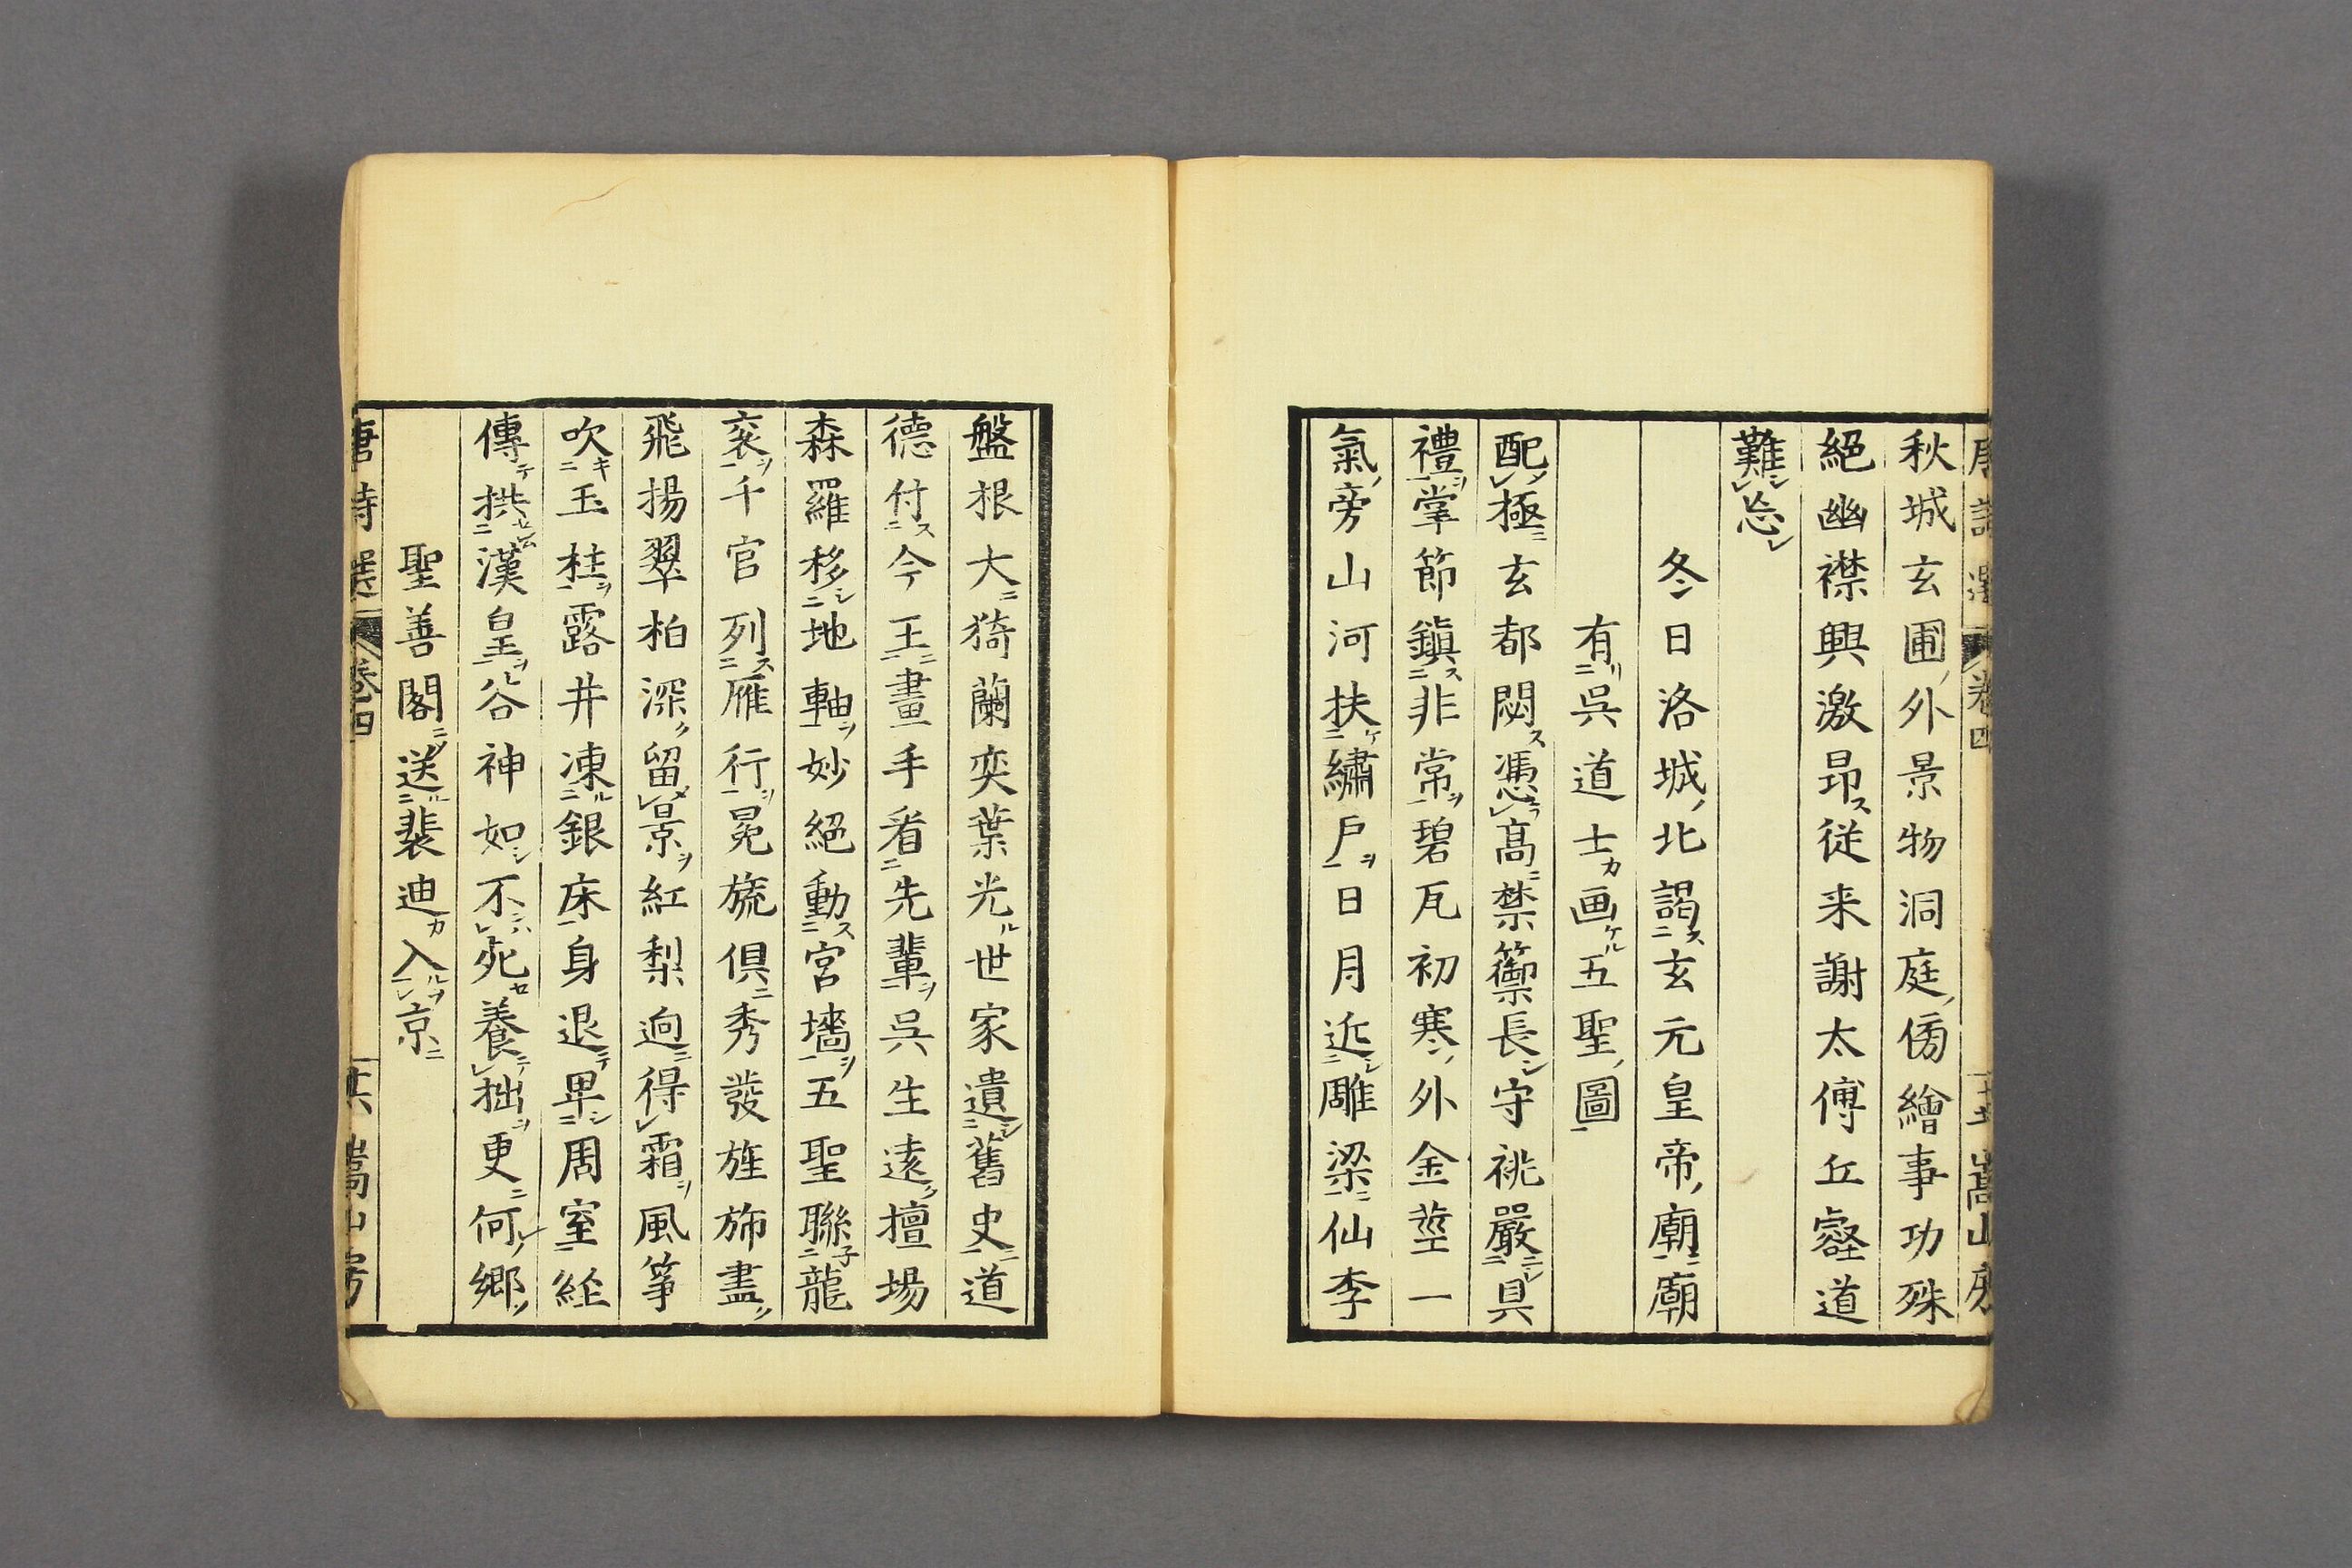 唐詩選 卷四 嵩山房
秋城玄圃外景物洞庭傍繪事功殊
絕幽襟興激昂從来謝太傅丘壑道
難忘
冬日洛城北謁玄元皇帝廟廟
有吳道士画五聖圖
配極玄都閟憑高禁籞長守祧嚴具
禮掌節鎮非常碧瓦初寒外金莖一
氣旁山河扶繡戶日月近雕梁仙李
盤根大猗蘭奕葉光世家遺舊史道
德付今王畫手看先輩吳生遠擅場
森羅移地軸妙絕動宮墻五聖聯龍
袞千官列雁行冕旒俱秀發旌旆盡
飛揚翠柏深留景紅梨迥得霜風筝
吹玉柱露井凍銀床身退卑周室経
傳拱漢皇谷神如不死養拙更何鄉
聖善閣送裴迪入京
唐詩選 卷四 十六 嵩山房